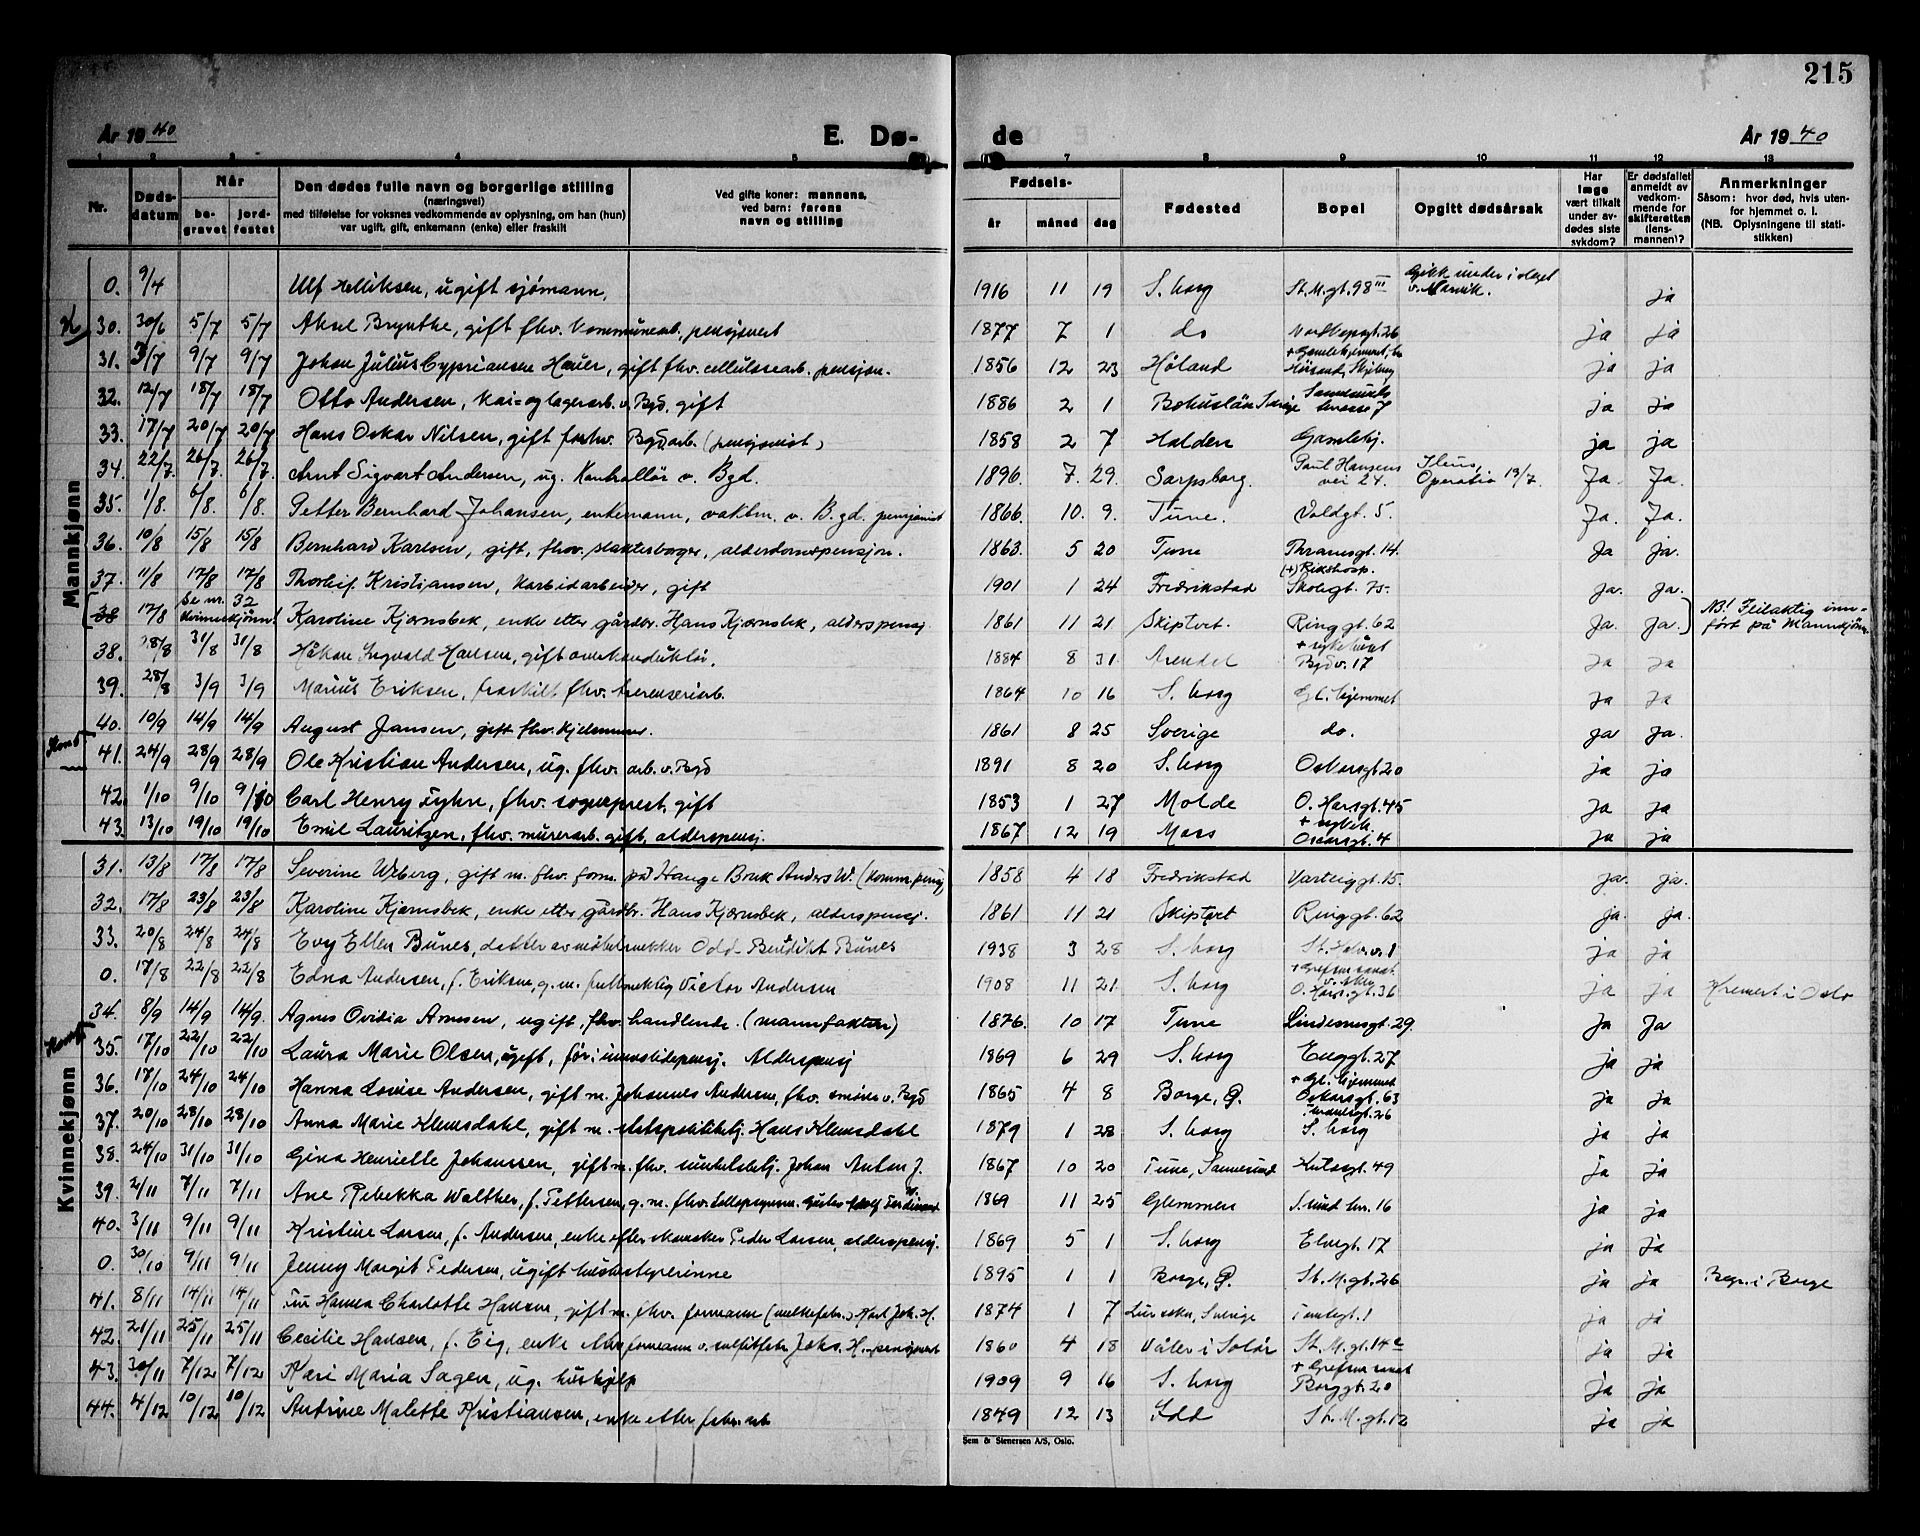 215
År 1940
E. Dø-
de
År 1940
1 2 3 4 5
7 8 9 10 11 12 13
Nr.
Døds-
datum
Når
be-
gravet
jord-
festet
Den dødes fulle navn og borgerlige stilling
(næringsvei)
med tilføielse for voksnes vedkommende av oplysning, om han (hun)
var ugift, gift, enkemann (enke) eller fraskilt
Ved gifte koner: mannens,
ved barn: farens
navn og stilling
Fødsels-
år måned dag
Fødested
Bopel
Opgitt dødsårsak
Har
læge
vært tilkalt
under av-
dødes siste
sykdom?
Er dødsfallet
anmeldt av
vedkom-
mende for
skifteretten
(lens-
mannen)?
Anmerkninger
Såsom: hvor død, hvis uten-
for hjemmet o. l.
(NB. Oplysningene til stati-
stikken)
Mannkjønn
0. 9/4 Ulf Helliksen, ugift sjømann, 1916 11 19 S.borg St. M.gt. 98 III Gikk under i slaget v. Narvik. ja
30. 30/6 5/7 5/7 Aksel Brynthe, gift fhv. kommunearb., pensjonert 1877 7 1 do ja ja
31. 3/7 9/7 9/7 Johan Julius Cypriansen Hauer, gift fhv. cellulosearb. pensjon. 1856 12 23 Høland ja ja
32. 12/7 18/7 18/7 Otto Andersen, kai- og lagerarb. v. Bgd, gift 1886 2 1 Bohuslän Sverige ja ja
33. 17/7 20/7 20/7 Hans Oskar Nilsen, gift forhv. Bgd arb. (pensjonist) 1858 2 7 Halden Gamlehj. ja ja
34. 22/7 26/7 26/7 Arnt Sigvart Andersen, ug. Kontrollør v. Bgd. 1896. 7. 29. Sarpsborg. Paul Hansens vei 24. Ileus, Operation 13/7. Ja. Ja.
35. 1/8. 6/8. 6/8. Petter Bernhard Johansen, enkemann, vaktm. v. B.gd. pensjonist 1866. 10. 9. Tune. Voldgt. 5. Ja. Ja.
36. 10/8 15/8 15/8 Bernhard Karlsen, gift, fhv. slakteborger, alderdomspensjon. 1863. 5 20 Tune Thranesgt. 14. Ja ja.
37. 11/8 17/8 17/8 Thorleif Kristiansen, karbidarbeider, gift 1901 1 24 Fredrikstad (+) Rikshosp. Skolegt. 75. Ja. Ja.
38 17/8 Se nr. 32 Kvinnekjønn! Karoline Kjærnsbek, enke etter gårdbr. Hans Kjærnsbek, alderspensj. 1861 11 21 Skiptvet. Ringgt. 62 Ja. Ja. NB! Feilaktig inn-
ført på Mannkjønn.
38. 28/8 31/8 31/8 Håkon Ingvald Hansen, gift overkonduktør. 1884 8 31 Arendal + sykehuset Bgdv. 17 ja ja
39. 28/8 3/9 3/9 Marius Eriksen, fraskilt fhv. 1864 10 16 S. borg Gl. hjemmet ja ja
40. 10/9 14/9 14/9 August Jansen, gift fhv. kjelemurer. 1861 8 25 Sverige do. ja ja.
Høst
41. 24/9 28/9 28/9 Ole Kristian Andersen, ug. fhv. arb. v. Bgd 1891 8 20 S. borg Oskarsgt. 20 ja ja
42. 1/10 9/10 9/10 Carl Henry Fyhn, fhv. sogneprest, gift 1853 1 27 Molde O. Harsgt. 45 ja ja
43. 13/10 19/10 19/10 Emil Lauritzen, fhv. murerarb. gift, alderspensj. 1867 12 19 Moss + sykeh. Oscarsgt. 4 ja ja
Kvinnekjønn
31. 13/8 17/8 17/8 Severine Wiberg, gift m. fhv. form. på Hauge Bruk Anders W. (komm. pensj. 1858 4 18 Fredrikstad Varteiggt. 15. ja. ja.
32. 17/8 23/8 23/8 Karoline Kjærnsbek, enke etter gårdbr. Hans Kjærnsbek, alderspensj. 1861 11 21 Skiptvet Ringgt. 62 ja. ja.
33. 20/8 24/8 24/8 Evy Ellen Bunes, datter av møbelsnekker Odd Benedikt Bunes 1938 3 28 S. borg St. Halv. v. 1 ja ja
0. 17/8 22/8 22/8 Edna Andersen, f. Eriksen, g. m. fullmektig Victor Andersen 1908 11 21 S. borg + Grefsen sanat. O. Harsgt. 36 ja ja Kremert i Oslo
34. 8/9 14/9 14/9. Agnes Ovidia Arnesen, ugift, fhv. handlende. (manufaktur) 1876. 10 17 Tune Lindesnesgt. 29. ja Ja
35. 17/10 22/10 22/10 Laura Marie Olsen, ugift, før: Alderspensj 1869 6 29 S. borg Enggt. 27 ja ja
36. 17/10 24/10 24/10 Hanna Lovise Andersen, gift m. Johannes Andersen, fhv. smører v. Bgd 1865 4 8 Borge, Ø. + Gl. hjemmet Oskarsgt. 63 ja ja
37. 20/10 28/10 28/10 Anna Marie Klemsdahl, gift m. Hans Klemsdahl 1879 1 28 S. borg S. borg ja ja
38. 24/10 31/10 31/10 Gina Henriette Johanssen, gift m. fhv. Johan Anton J. 1867 10 20 Tune, Sannesund 49 ja ja
39. 2/11 7/11 7/11 Ane Rebekka Walther, f. Pettersen, g. m. fhv. Gustav Adolf Ferdinand 1869 11 25 Glemmen 16 ja ja
40. 3/11 9/11 9/11 Kristine Larsen, f. Andersen, enke efter skomaker Peder Larsen, alderspensj. 1869 5 1 S. borg Elvegt. 17 ja ja
0. 30/10 9/11 9/11 Jenny Margit Pedersen, ugift husbestyrerinne 1895 1 1 Borge, Ø. St. M. gt. 26 ja ja Begr. i Borge
41. 8/11 14/11 14/11 Hanna Charlotte Hansen, gift m. fhv. formann Karl Joh. H. 1874 1 7 Sverige Tunegt. 1 ja ja
42. 21/11 25/11 25/11 Cecilie Hansen, f. Eig, enke formann v. sulfitfabr. Johs. H. pensjonert 1860 4 18 Våler i Solør St. M. gt. 14 ja ja
43. 30/11 7/12 7/12 Kari Maria Sagen, ug. hushjelp 1909 9 16 S. borg + Grefsen sanat Borggt. 20 ja ja
44. 4/12 10/12 10/12 Antrine Malette Kristiansen, enke etter fabr. arb 1849 12 13 Idd St. M. gt. 12 ja ja
Sem & Stenersen A/S, Oslo.